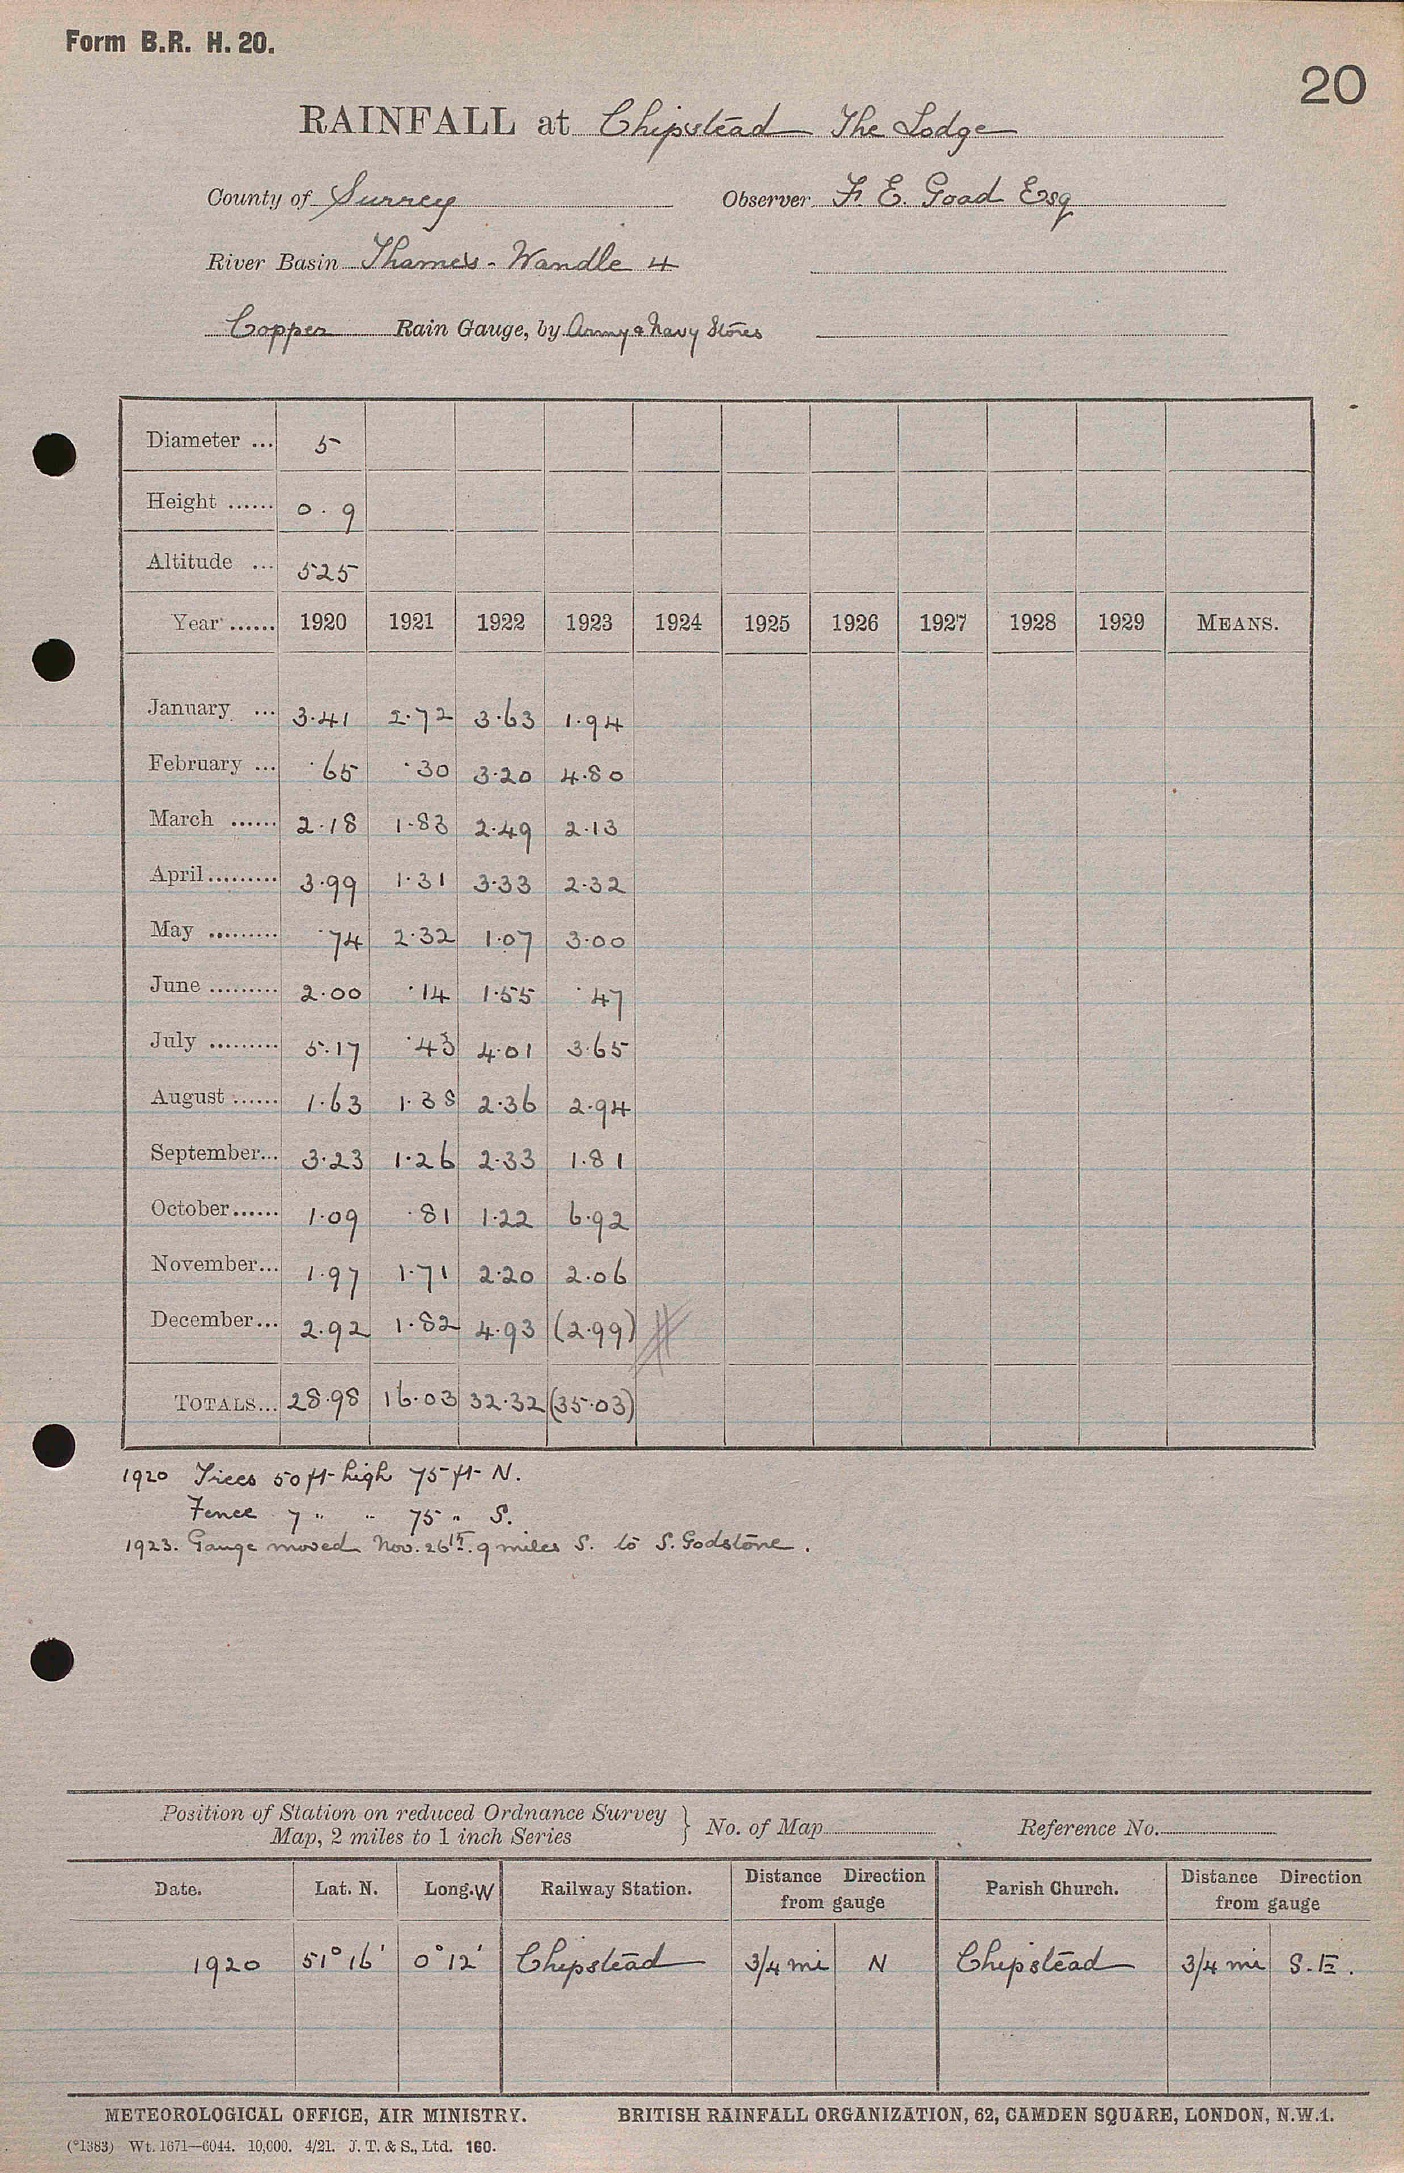 Form B.R. H. 20.
20
RAINFALL at Chipstead The Lodge
County of Surrey Observer F. E. Goad Esq
River Basin Thames - Wandle 4
Copper Rain Gauge, by Army & Navy Stores
Diameter ... 5
Height ...... 0.9
Altitude ... 525
Year ...... 1920 1921 1922 1923 1924 1925 1926 1927 1928 1929 MEANS.
January ... 3.41 2.72 3.63 1.94
February ... .65 .30 3.20 4.80
March ...... 2.18 1.83 2.49 2.13
April ......... 3.99 1.31 3.33 2.32
May ......... .74 2.32 1.07 3.00
June ......... 2.00 .14 1.55 .47
July ......... 5.17 .43 4.01 3.65
August ...... 1.63 1.38 2.36 2.94
September... 3.23 1.26 2.33 1.81
October...... 1.09 .81 1.22 6.92
November... 1.97 1.71 2.20 2.06
December... 2.92 1.82 4.93 (2.99)
TOTALS... 28.98 16.03 32.32 (35.03)
1920 Trees 50 ft high 75 ft N.
Fence 7 " " 75 " S.
1923. Gauge moved Nov. 26th. 9 miles S. to S. Godstone.
Position of Station on reduced Ordnance Survey
Map, 2 miles to 1 inch Series } No. of Map Reference No.
Date. Lat. N. Long. W Railway Station. Distance Direction from gauge Parish Church. Distance Direction from gauge
1920 51° 16' 0° 12' Chipstead 3/4 mi N Chipstead 3/4 mi S.E.
METEOROLOGICAL OFFICE, AIR MINISTRY. BRITISH RAINFALL ORGANIZATION, 62, CAMDEN SQUARE, LONDON, N.W.1.
(*1383) Wt. 1671—6044. 10,000. 4/21. J. T. & S., Ltd. 160.